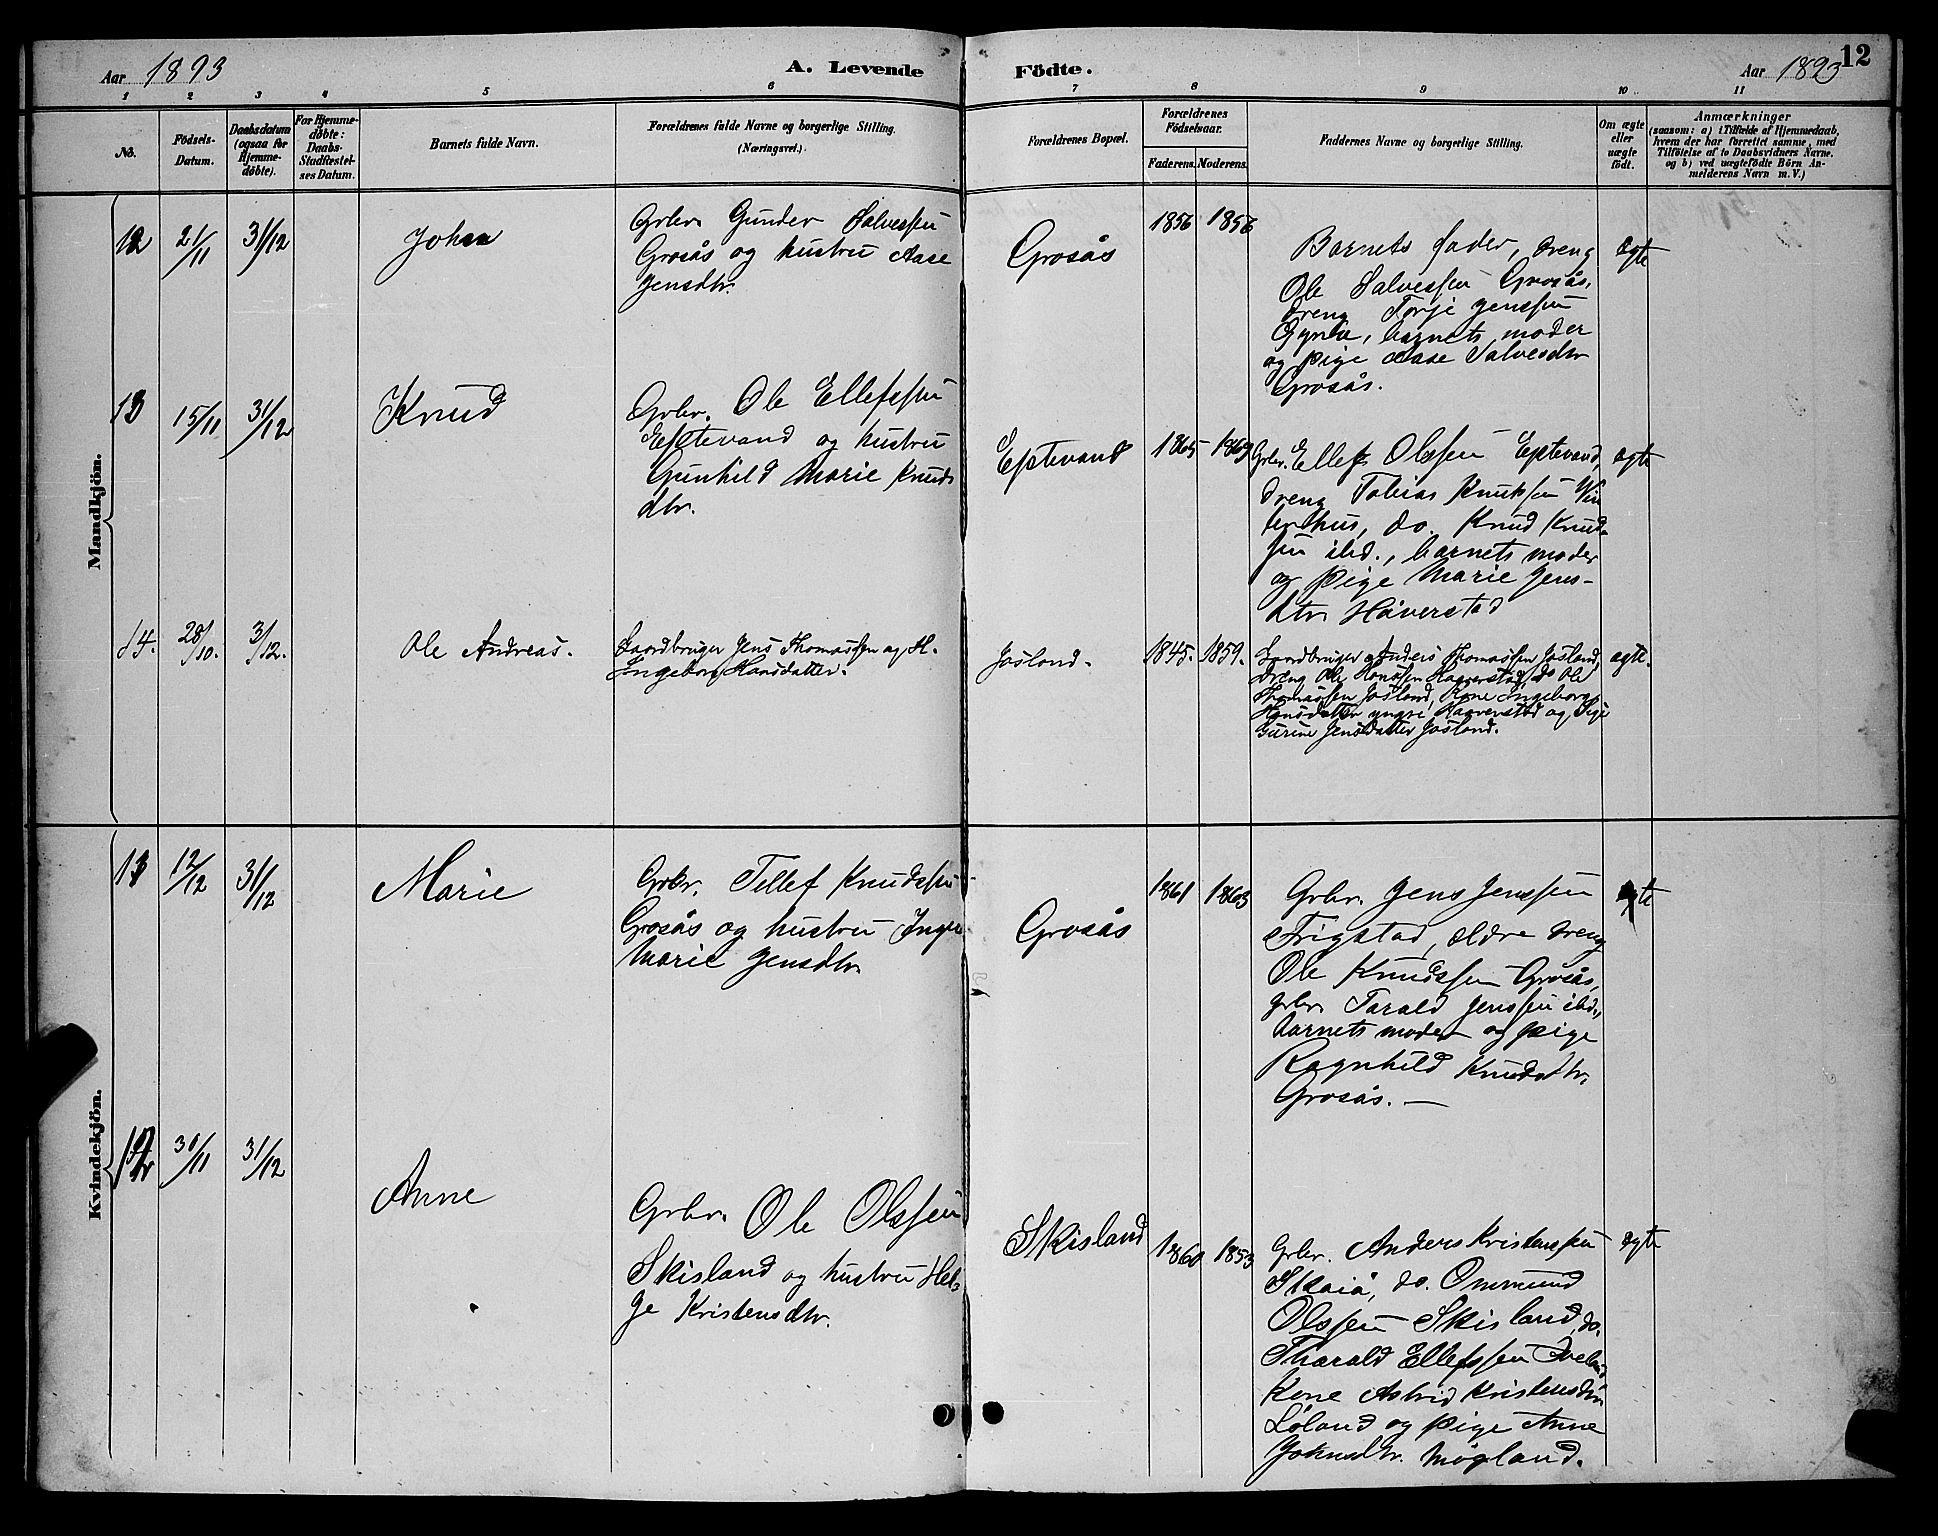 12
Aar 1893
A. Levende Födte.
Aar 1893
1 2 3 4 5 6 7 8 9 10 11
No.
Födsels-
Datum.
Daabsdatum
(ogsaa for
Hjemme-
döbte).
For Hjemme-
döbte:
Daabs-
Stadfæstel-
ses Datum.
Barnets fulde Navn.
Forældrenes fulde Navne og borgerlige Stilling.
(Næringsvei.)
Forældrenes Bopæl.
Forældrenes
Födselsaar.
Faderens. Moderens.
Faddernes Navne og borgerlige Stilling.
Om ægte
eller
uægte
født.
Anmærkninger
(saasom: a) i Tilfælde af Hjemmedaab,
hvem der har forrettet samme, med
Tilföielse af to Daabsvidners Navne.
og b) ved uægtefödte Börn An-
melderens Navn m. V.)
Mandkjön.
12
21/11
31/12
Johan
Grbr. Gunder Salvessen
Grosås og hustru Aase
Jensdtr.
Grosås
1856 1856
Barnets fader, dreng
Ole Salvessen Grosås,
dreng Torje Jenssen
barnets moder
og pige Aase Salvesdtr
Grosås.
ægte
13
15/11
31/12
Knud
Grbr. Ole Ellefssen
Eptevand og hustru
Gunhild Marie Knuds
dtr.
Eptevand
1865 1869
Grbr. Ellef Olssen Eptevand,
dreng Tobias Knudsen Vin
terhus, do. Knud Knud-
sen ibd., barnets moder
og pige Marie Jens-
dtr Håverstad
ægte
14.
28/10.
3/12.
Ole Andreas.
Gaardbruger Jens Thomassen og H.
Ingeborg Hansdatter.
Josland.
1845. 1859.
Gaardbruger Anders Thomassen Josland,
Dreng Ole Hanssen Haaverstad, do Ole
Thomassen Josland, Kone Ingeborg
Hansdatter yngre Haaverstad og Pige
Gurine Jensdatter Josland.
ægte.
Kvindekjön.
13
12/12
31/12
Marie
Grbr. Tellef Knudssen
Grosås og hustru Inger
Marie Jensdtr.
Grosås
1861 1863
Grbr. Jens Jenssen
Frigstad, ældre dreng
Ole Knudssen Grosås,
grbr. Tarald Jenssen ibd.,
barnets moder og pige
Ragnhild Knudsdtr.
Grosås. —
ægte
12
30/11
31/12
Anne
Grbr. Ole Olssen
Skisland og hustru Hel-
ge Kristensdtr.
Skisland
1860 1853
Grbr. Anders Kristenssen
Skaiå, do. Ommund
Olssen Skisland, do.
Tharald Ellefssen
Kone Astrid Kristensdtr
Løland og pige Anne
Johnsdtr. Møgland.
ægte